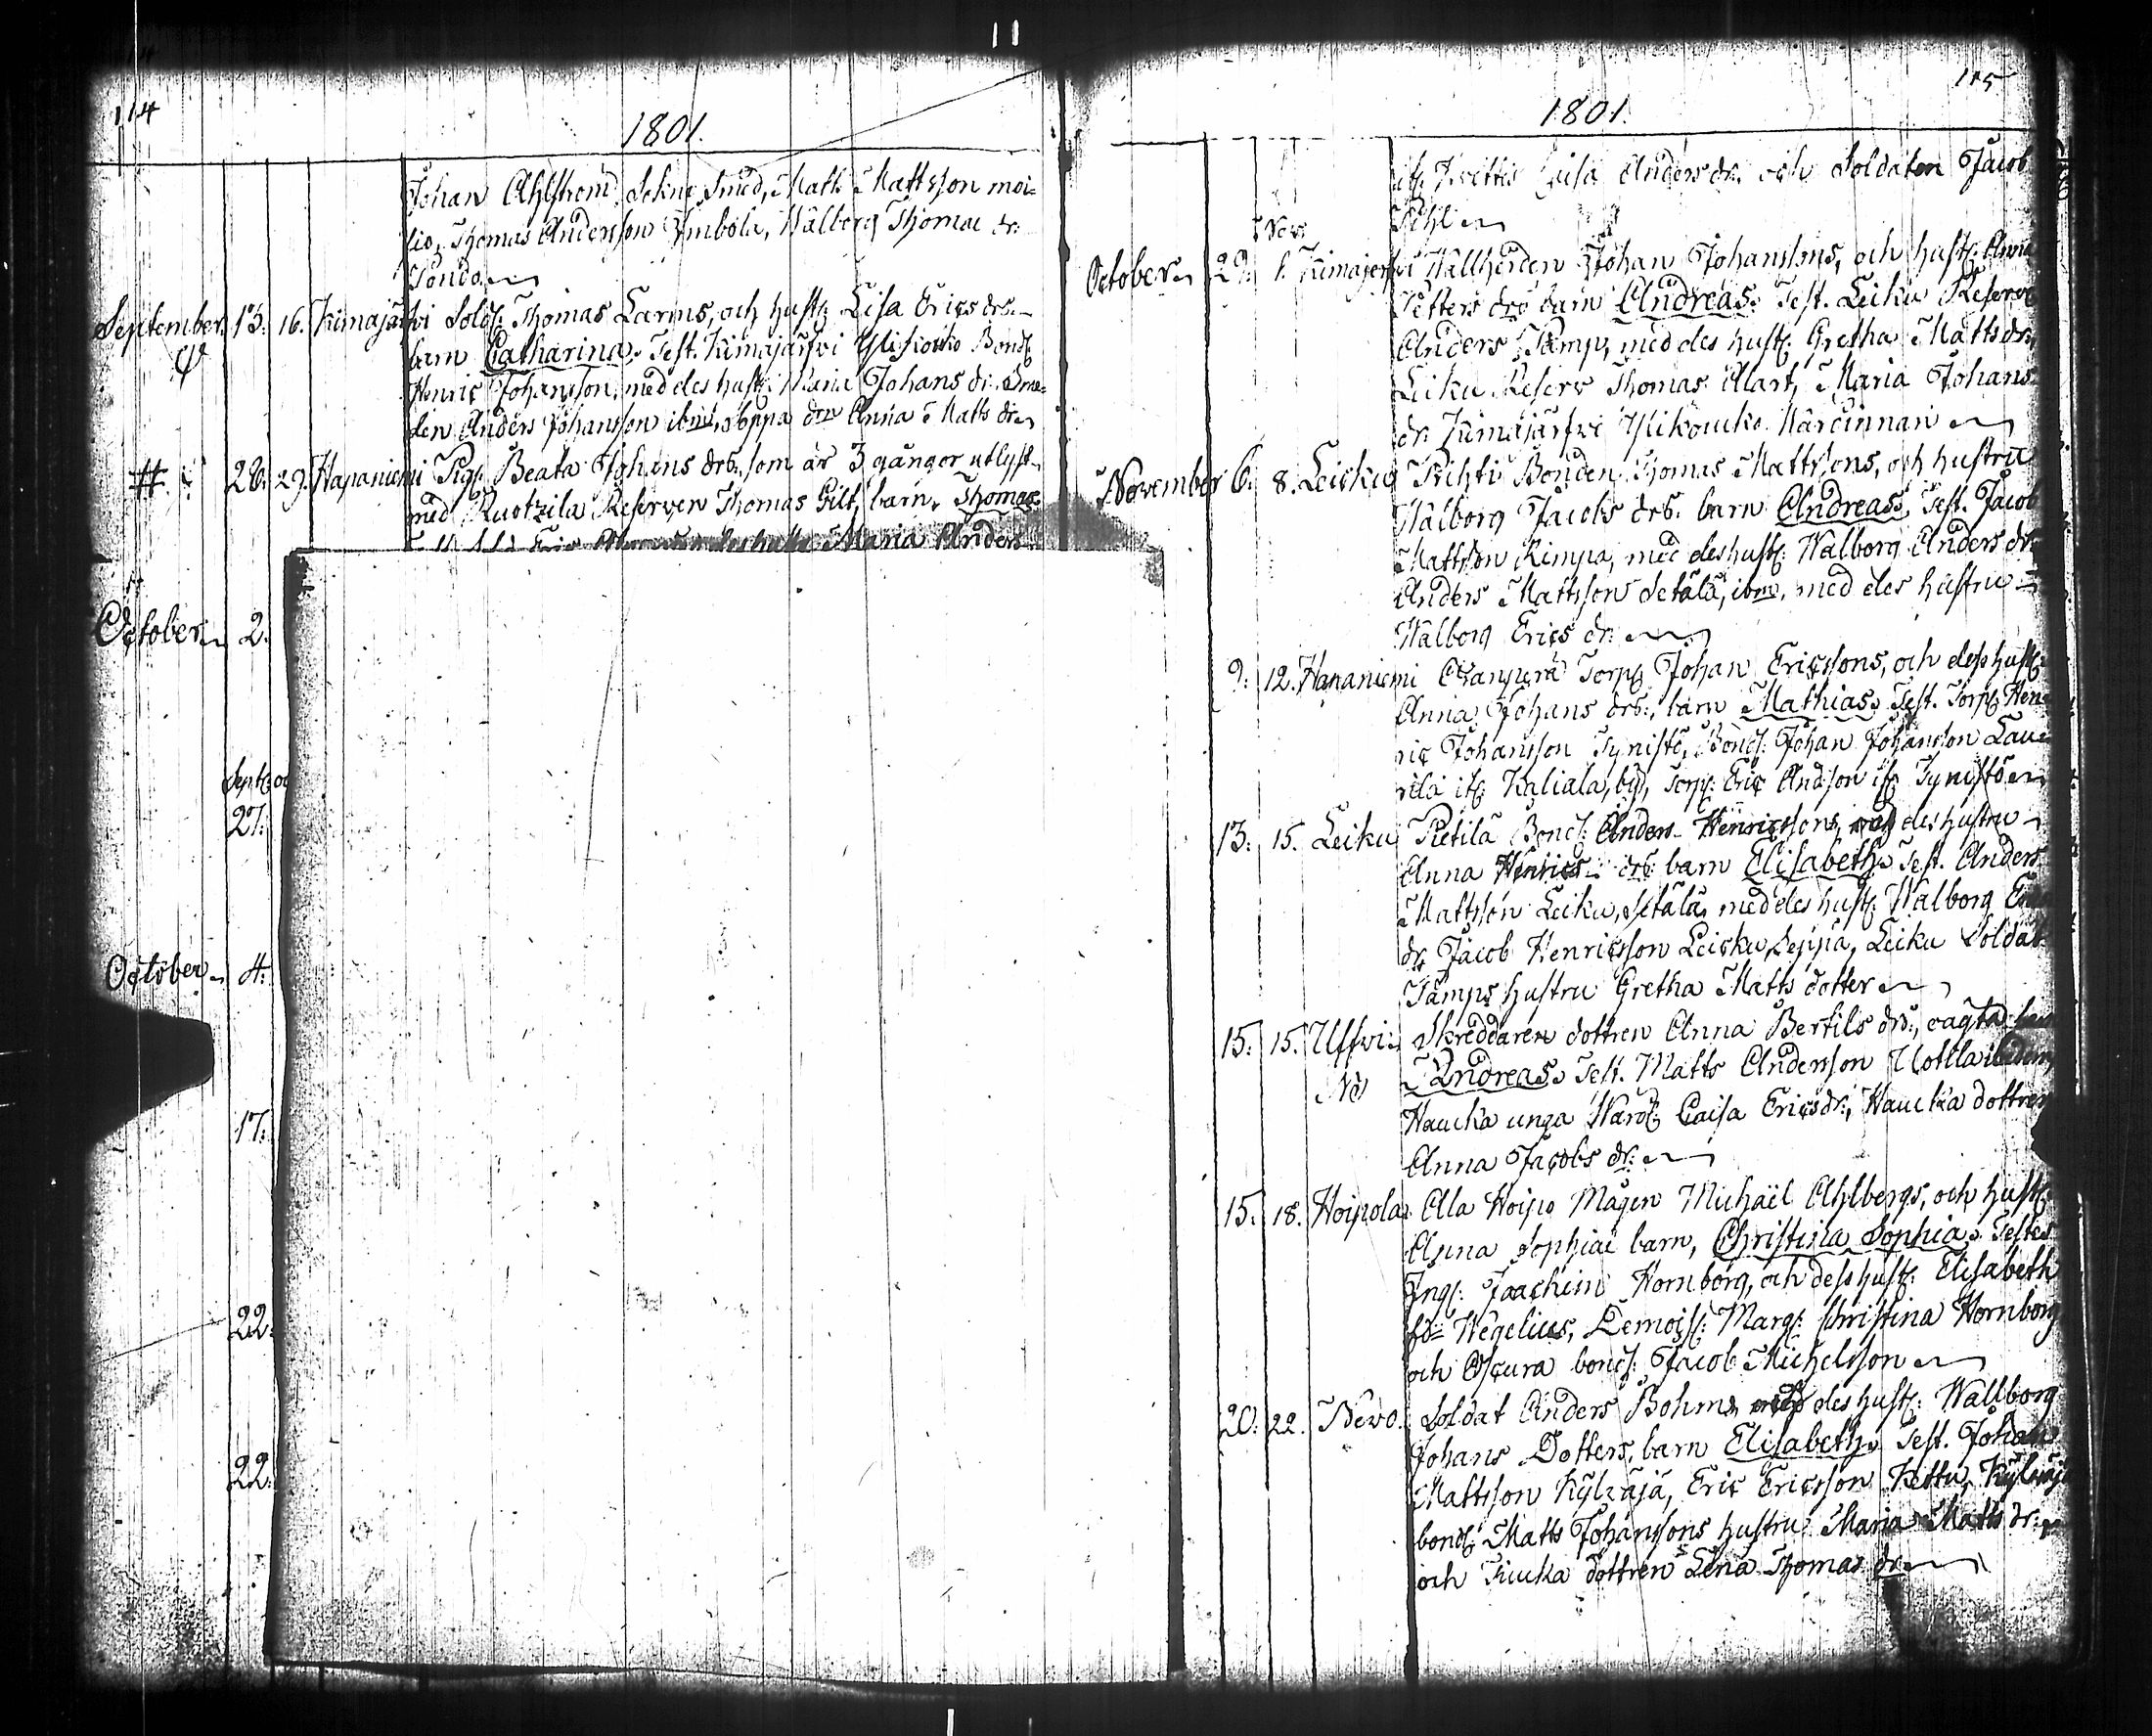 114
1801.
Johan Ahlström, Sokne Smed, Matts Mattsson moi-
sio, Thomas Andersson Ymbola, Walborg Thomae dr:
Pondo
September 13. 16. Kimajärfvi Sold: Thomas Larms, och hust: Lisa Erics drs.
barn Catharina. Test. Kimajärfvi Ylikouko Bond:
Henric Johansson, med des hust: Maria Johans dr. Dme-
den Anders Johansson ibm, Anna Matts dr
# 28. 29. Hapaniemi Pig: Beata Johans drs. som är 3 gånger utlyst
med Ruotzila Reserven Thomas Gilt, barn. Thomas
Maria Anders
October 2.
Sept:
27.
October 4.
17.
22.
22.
115
1801.
Caisa Anders dr. och Soldaten Jacob
Pihl
Nov.
October 29. 1. Kimajerfvi Wallherden Johan Johanssons, och hust: Anna
Petters drs barn Andreas. Test. Leiku Reserve
Anders Tamp, med des hust: Gretha Matts dr.
Leiku Reserv Thomas Alart, Maria Johans
dr. Kimajärfvi Ylikouko Wärdinnan
November 6. 8. Leisku Prihti Bonden Thomas Mattsons, och hustru
Walborg Jacobs drs. barn Andreas. Test. Jacob
Mattson Rimpa, med des hust: Walborg Anders dr:
Anders Mattsson Setälä, ibm, med des hustru
Walborg Erics dr:
9. 12. Hapaniemi Torp: Johan Ericssons, och des hust:
Anna Johans drs., barn Mathias. Test. Torp: Hen-
ric Johansson Tynistö, Bond: Johan Johansson Lau-
rila if: Kaliala, by, Torp: Eric Andson if: Tynistö
13. 15. Leiku Pietilä Bond: Anders Henricssons, och des hustru
Anna Henrics drs: barn Elisabeth. Test. Anders
Mattson Leiku, Setälä, med des hust: Walborg
dr. Jacob Henricsson Leisku, Seppä, Leiku Soldat
Tamps hustru Gretha Matts dotter
15. 15. Uffwi: Skreddaren dottren Anna Bertils drs., oägta
No Andreas. Test. Matts Andersson
Haucka unga Wärd: Caisa Erics dr., Haucka dottren
Anna Jacobs dr.
15. 18. Hoipola Ala Hoipo Mågen Michaël Ahlbergs, och hust:
Anna Sophiae barn, Christina Sophia. Testes
Ing: Joachim Hornborg, och dess hust: Elisabeth
fd: Wegelius, Demois: Marg: Christina Hornborg
och Oscura bond: Jacob Michelsson
20. 22. Newo. Soldat Anders Bohms och des hust: Wallborg
Johans Dotters, barn Elisabeth. Test. Johan
Mattsson Kylxäjä, Eric Ericsson Kettu,
bond: Matts Johanssons hustru Maria Matts dr:
och Kiucka dottren Lena Thomas dr